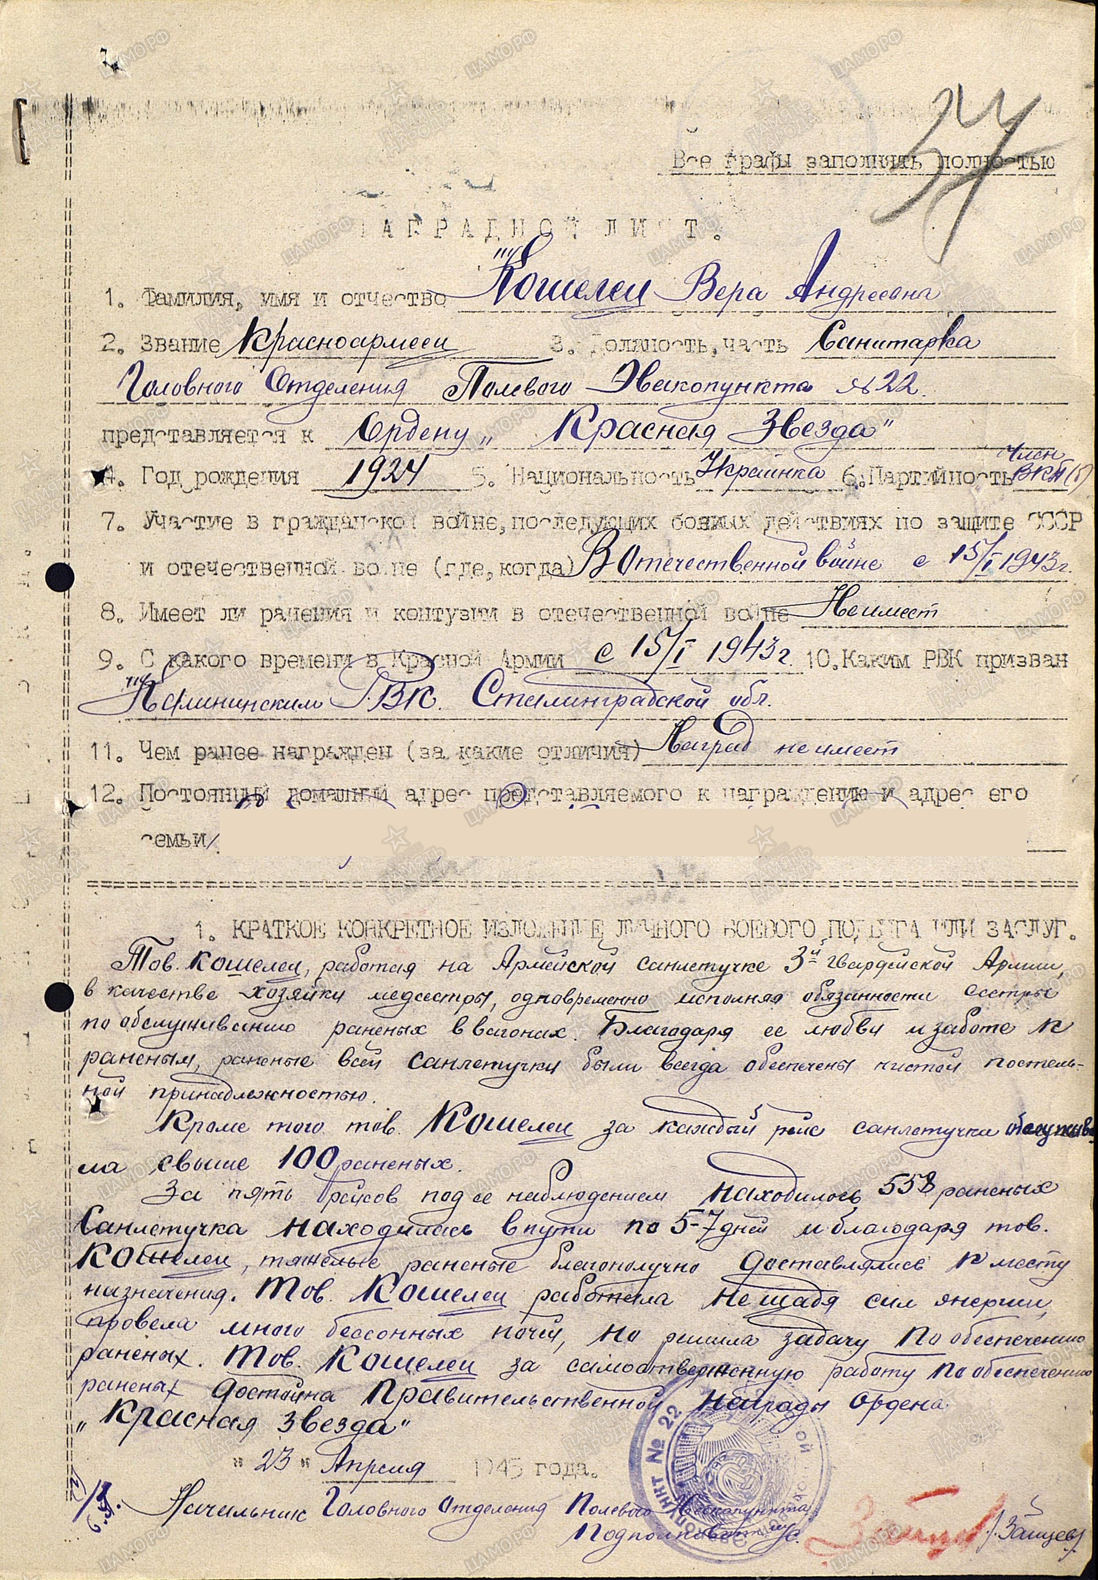 37
Все графы заполнять полностью
НАГРАДНОЙ ЛИСТ.
1. Фамилия, имя и отчество Кошелец Вера Андреевна
2. Звание Красноармеец 3. Должность, часть Санитарка
Головного Отделения Полевого Эвакопункта №22.
представляется к Ордену „Красная Звезда"
4. Год рождения 1924 5. Национальность Украинка 6. Партийность Член ВКП(б)
7. Участие в гражданской войне, последующих боевых действиях по защите СССР
и отечественной войне (где, когда) В Отечественной войне с 15/I 1943г.
8. Имеет ли ранения и контузии в отечественной войне Не имеет
9. С какого времени в Красной Армии с 15/I 1943г. 10. Каким РВК призван
Калининским РВК. Сталинградской обл.
11. Чем ранее награжден (за какие отличия) Наград не имеет
12. Постоянный домашний адрес представляемого к награждению и адрес его
семьи
1. КРАТКОЕ КОНКРЕТНОЕ ИЗЛОЖЕНИЕ ЛИЧНОГО БОЕВОГО ПОДВИГА ИЛИ ЗАСЛУГ.
Тов. Кошелец, работая на Армейской санлетучке 3й гвардейской Армии,
в качестве хозяйки медсестры, одновременно исполняя обязанности сестры
по обслуживанию раненых в вагонах. Благодаря ее любви и заботе к
раненым, раненые всей санлетучки были всегда обеспечены чистой постель-
ной принадлежностью.
Кроме того тов. Кошелец за каждый рейс санлетучки обслужива
ла свыше 100 раненых.
За пять рейсов под ее наблюдением находилось 558 раненых
Санлетучка находилась в пути по 5-7 дней и благодаря тов.
Кошелец, тяжелые раненые благополучно доставлялись к месту
назначения. Тов. Кошелец работала не щадя сил энергии,
провела много бессонных ночей, но решила задачу по обеспечению
раненых. Тов. Кошелец за самоотверженную работу по обеспечению
раненых достойна Правительственной награды ордена
„Красная звезда"
"23" Апреля 1945 года.
Начальник Головного Отделения Полевого Эвакопункта
Подполковник м/с. /Зайцев/